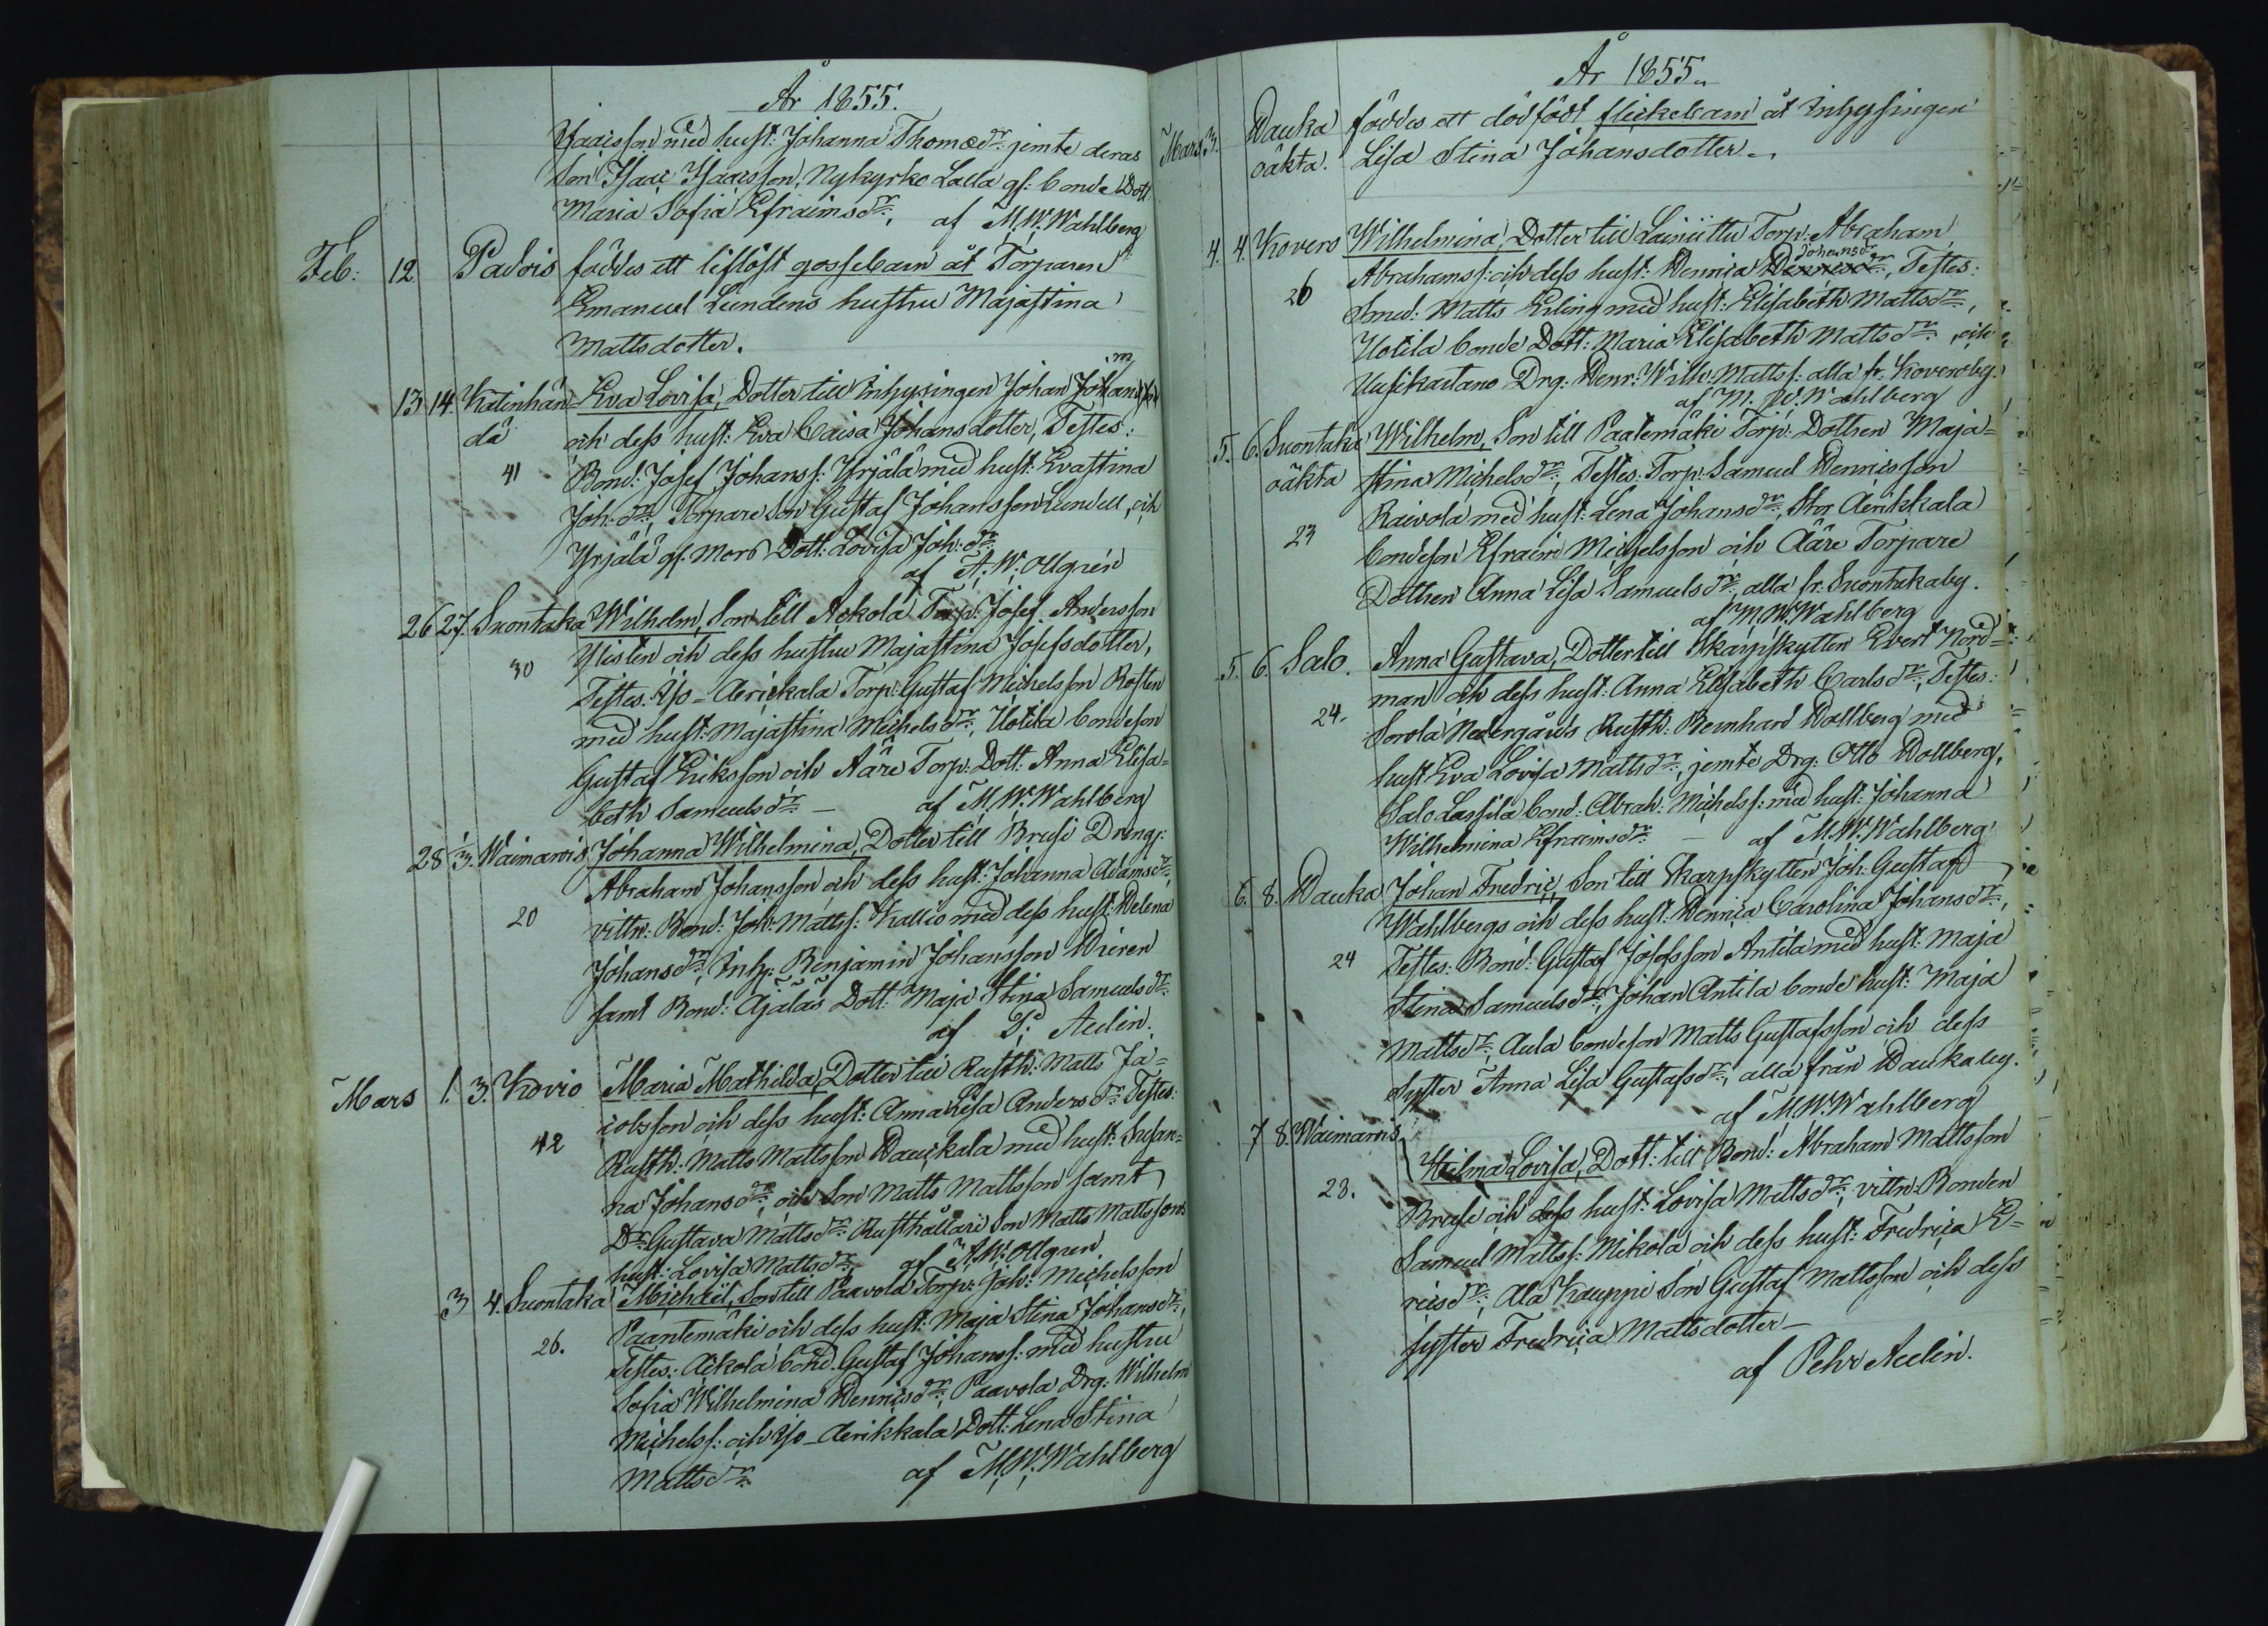 År 1855.
Isaacsson med hust: Johanna Thomædr: jemte deras
Son Isaac Isaacsson, Nykyrko Lalla gf: bonde Dott:
Maria Sofia Efraimsdr:, af M. W. Wahlberg
Feb: 12 Padois föddes ett liflöst gossebarn åt Torparen
Emanuel Lundens hustru Majastina
Mattsdotter.
13 14 Katinhän= Eva Lovisa, Dotter till Inhysingen Johan Johanss:
dä och dess hust: Eva Caisa Johansdotter, Testes:
41 Bond: Josef Johanss: Yrjälä med hust: Evastina
Joh:dr:, Torpare Son Gustaf Johansson Lundell, och
Yrjälä gf: Mors Dott: Lovisa Joh:dr:
af A. W. Ollgren
26 27. Suontaka Wilhelm, Son till Ackola Torp: Josef Andersson
30 Ylisten och dess hustru Majastina Josefsdotter,
Testes: Iso-Aerickala Torp: Gustaf Michelsson Rosten
med hust: Majastina Michelsdr:, Uotila bondeson
Gustaf Eriksson och Ääre Torp: Dott: Anna Elisa=
beth Samuelsdr: – af M. W. Wahlberg
28 1/3. Waimaris Johanna Wilhelmina, Dotter till Brusi Drengj:
Abraham Johansson och dess hust: Johanna Adamsdr:,
20 vittn: Bond: Joh: Mattss: Kallio med dess hust: Helena
Johansdr:, Inh: Benjamin Johansson Wiren
samt Bond: Ajalas Dott: Maja Stina Samuelsdr:
af P. Aulin.
Mars 1. 3. Kovio Maria Mathilda, Dotter till Rusth: Matts Ja=
cobsson och dess hust: Anna Lisa Andersdr: Testes:
42 Rusth: Matts Mattsson Hauckala med hust: Susan=
na Johansdr:, och Son Matts Mattsson samt
Dr: Gustava Mattsdr: Rusthållare Son Matts Mattssons
hust: Lovisa Mattsdr: af A. W. Ollgren.
3 4. Suontaka Michaël, Son till Paavola Torp: Joh: Michelsson
26. Paantemäki och dess hust: Maja Stina Johansdr:,
Testes: Ackola bond. Gustaf Johanss: med hustru
Sofia Wilhelmina Henricsdr:, Paavola Drg: Wilhelm
Michelss: och Iso-Aerikkala Dott: Lena Stina
Mattsdr: af M. W. Wahlberg
År 1855.
Mars 3. Hauka föddes ett dödfödt flickebarn åt Inhysingen
oäkta. Lisa Stina Johansdotter.
4. 4. Kovero Wilhelmina, Dotter till Torp: Abraham
Johansdr:
26 Abrahamss: och dess hust: Henrica Henricsdr:, Testes:
Smed: Matts Erling med hust: Elisabeth Mattsdr:,
Uotila bonde Dott: Maria Elisabeth Mattsdr:, och
Uusikartano Drg: Henr: Wilh: Mattss: alla fr. Koveroby.
af M. W. Wahlberg
5. 6. Suontaka Wilhelm, Son till Paatemäki Torp: Dottren Maja=
oäkta stina Michelsdr:, Testes: Torp: Samuel Henricsson
23 Raivola med hust: Lena Johansdr:, Stor Aerikkala
bondeson Efraim Michelsson och Ääre Torpare
Dottren Anna Lisa Samuelsdr:, alla fr. Suontakaby.
af M. W. Wahlberg
5. 6. Salo. Anna Gustava, Dotter till Skarpskytten Evert Nord=
man och dess hust: Anna Elisabeth Carlsdr:, Testes:
24. Sorola Nedergårds Rusth: Bernhard Hollberg med
hust Eva Lovisa Mattsdr:, jemte Drg: Otto Hollberg,
Salo Lassila bond: Abrah: Michelss: med hust: Johanna
Wilhelmina Efraimsdr: – af M. W. Wahlberg
6. 8. Hauka Johan Fredric, Son till Skarpskytten Joh: Gustaf
Wahlbergs och dess hust: Henrica Carolina Johansdr:,
24 Testes: Bond: Gustaf Josefsson Antila med hust: Maja
Stina Samuelsdr:, Johan Antila bonde hust: Maja
Mattsdr:, Aula bondeson Matts Gustafsson och dess
Syster Anna Lisa Gustafsdr:, alla från Haukaby.
af M. W. Wahlberg
7 8. Waimaris
23. Hilma Lovisa, Dott: till Bond: Abraham Mattsson
Bruse och dess hust: Lovisa Mattsdr:, vittn: Bonden
Samuel Mattss: Mikola och dess hust: Fredrica E=
ricsdr:, Ala Kauppi Son Gustaf Mattsson och dess
syster Fredrica Mattsdotter –
af Pehr Aulin.